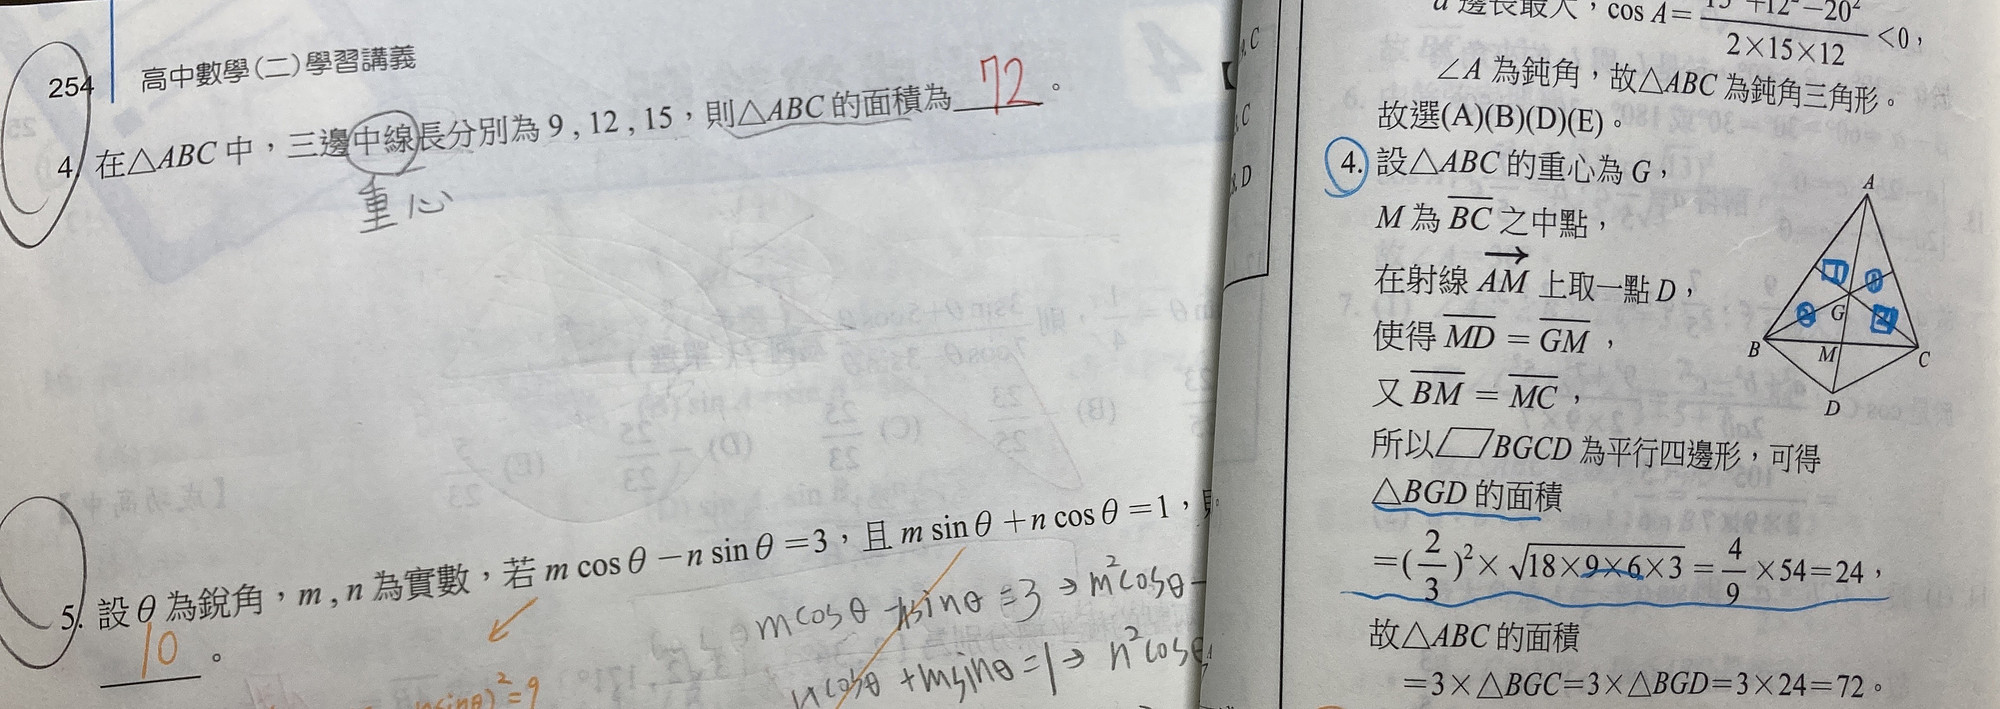 254 高中數學(二)學習講義
4. 在△ABC 中，三邊中線長分別為 9 , 12 , 15，則△ABC 的面積為 72 。
重心
5. 設 θ 為銳角，m , n 為實數，若 m cos θ − n sin θ = 3，且 m sin θ + n cos θ = 1，
10 。
mcosθ − nsinθ = 3 → m²cosθ −
ncosθ + msinθ = 1 → n²cosθ
nsinθ)² = 9
C
C
D
邊長最大，cos A = (15² + 12² − 20²)/(2×15×12) < 0，
∠A 為鈍角，故△ABC 為鈍角三角形。
故選(A)(B)(D)(E)。
4. 設△ABC 的重心為 G，
M 為 BC 之中點，
在射線 AM 上取一點 D，
使得 MD = GM，
又 BM = MC，
所以▱BGCD 為平行四邊形，可得
△BGD 的面積
= (2/3)² × √(18×9×6×3) = 4/9 × 54 = 24，
故△ABC 的面積
= 3×△BGC = 3×△BGD = 3×24 = 72。
A
G
B
M
C
D